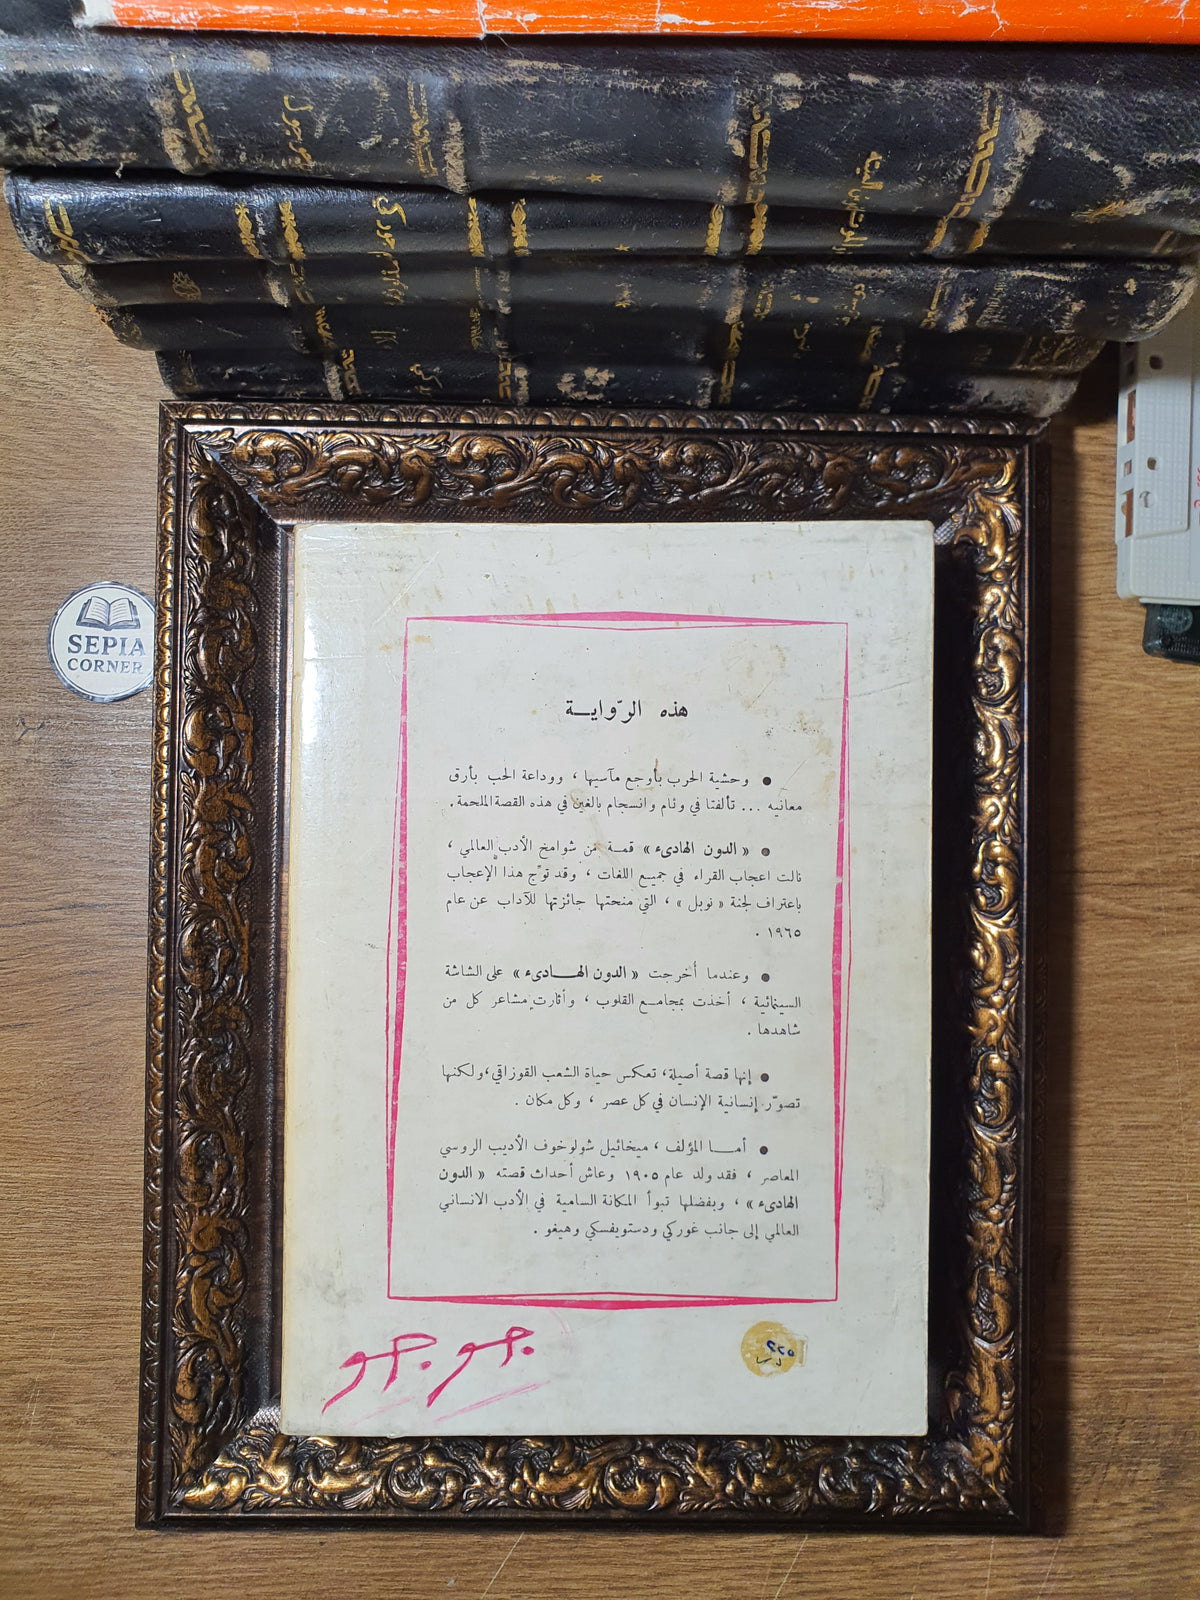 SEPIA
CORNER
هذه الرّوايـــة
● وحشية الحرب بأوجع مآسيها ، ووداعة الحب بأرق
معانيه ... تألفتا في وئام وانسجام بالغين في هذه القصة الملحمة .
● « الدون الهادىء » قمـة من شوامخ الأدب العالمي ،
نالت اعجاب القراء في جميع اللغات ، وقد توّج هذا الإعجاب
باعتراف لجنة « نوبل » ، التي منحتها جائزتها للآداب عن عام
١٩٦٥ .
● وعندما أخرجت « الدون الهـــادىء » على الشاشة
السينمائية ، أخذت بمجامـع القلوب ، وأثارت مشاعر كل من
شاهدها .
● إنها قصة أصيلة، تعكس حياة الشعب القوزاقي، ولكنها
تصوّر إنسانية الإنسان في كل عصر ، وكل مكان .
● أمــا المؤلف ، ميخائيل شولوخوف الأديب الروسي
المعاصر ، فقد ولد عام ١٩٠٥ وعاش أحداث قصته « الدون
الهادىء » ، وبفضلها تبوأ المكانة السامية في الأدب الانساني
العالمي إلى جانب غوركي ودستويفسكي وهيغو .
جو جو
٢٢٥